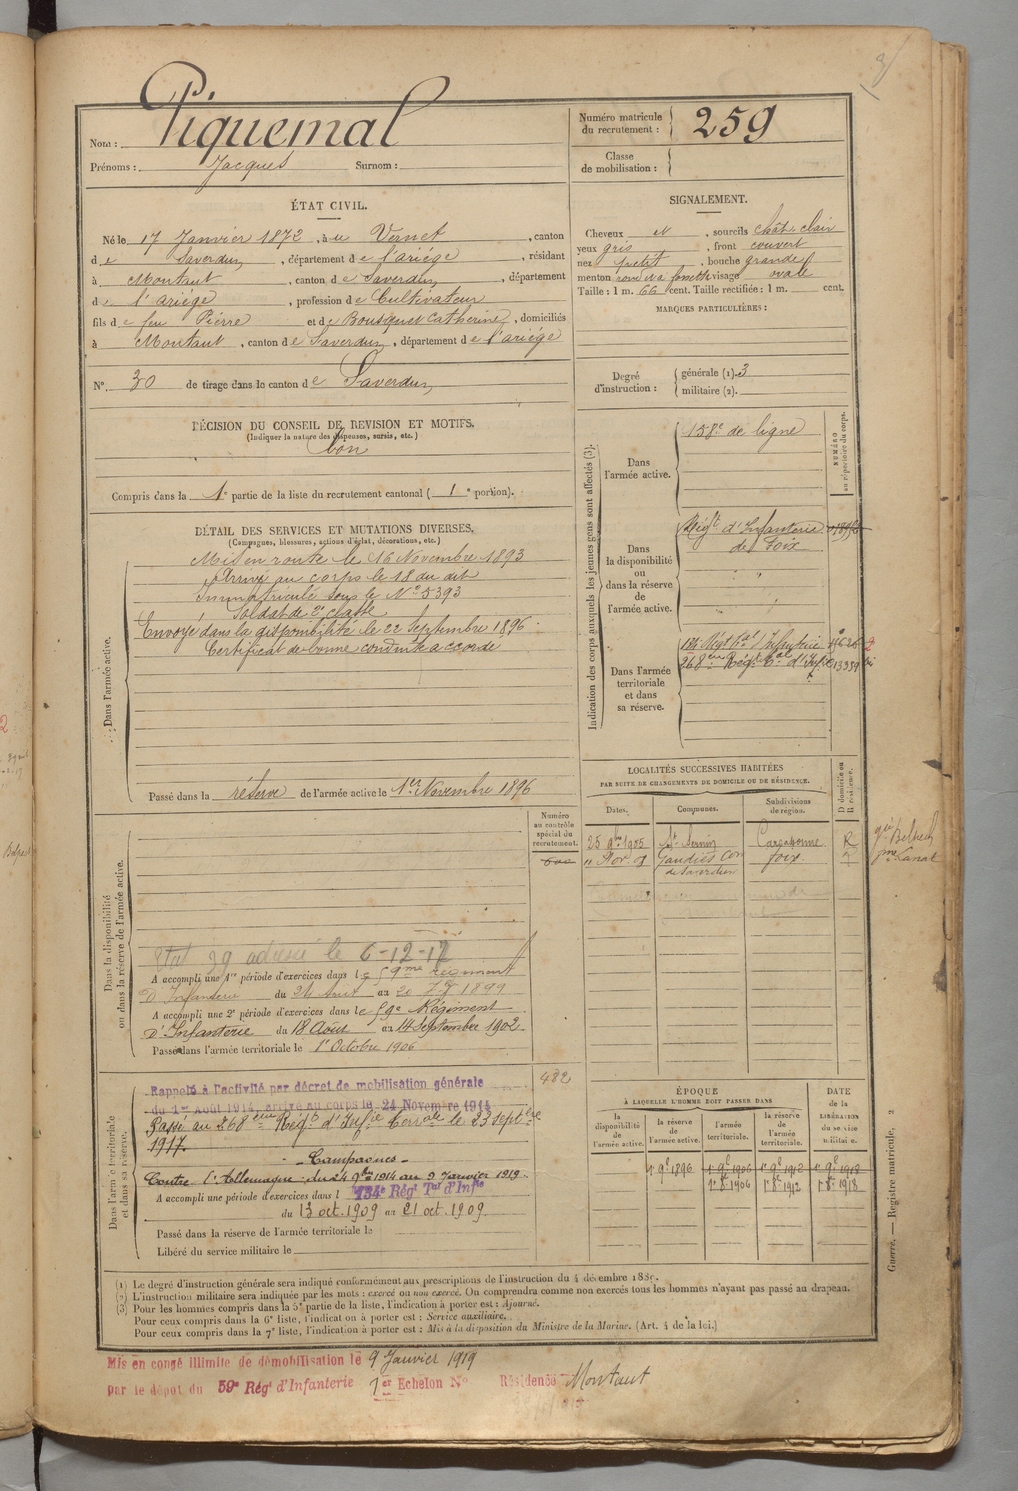 Nom : Piquemal
Prénoms : Jacques Surnom :
Numéro matricule du recrutement : 259
Classe de mobilisation :
ÉTAT CIVIL.
Né le 17 Janvier 1872, à u Vernet, canton
d e Saverdun, département de l'ariége, résidant
à Montaut, canton de Saverdun, département
de l'ariége, profession de Cultivateur
fils de feu Pierre et de Bousquet Catherine, domiciliés
à Montaut, canton de Saverdun, département de l'ariége
N° 30 de tirage dans le canton de Saverdun
SIGNALEMENT.
Cheveux et, sourcils chât. clair
yeux gris, front couvert
nez petit, bouche grande
menton rond et à fossette visage ovale
Taille : 1 m. 66 cent. Taille rectifiée : 1 m. cent.
MARQUES PARTICULIÈRES :
Degré d'instruction : générale (1). 3
militaire (2).
DÉCISION DU CONSEIL DE REVISION ET MOTIFS.
(Indiquer la nature des dispenses, sursis, etc.)
bon
Compris dans la 1e partie de la liste du recrutement cantonal ( 1e portion).
DÉTAIL DES SERVICES ET MUTATIONS DIVERSES.
(Campagnes, blessures, actions d'éclat, décorations, etc.)
Dans l'armée active.
Mis en route le 16 Novembre 1893
Arrivé au corps le 18 du dit
Immatriculé sous le N° 5393
Soldat de 2e classe
Envoyé dans la disponibilité le 22 Septembre 1896
Certificat de bonne conduite accordé
Passé dans la réserve de l'armée active le 1er Novembre 1896
Indication des corps auxquels les jeunes gens sont affectés (3).
NUMÉRO au répertoire du corps.
Dans l'armée active.
158e de ligne
Dans la disponibilité ou dans la réserve de l'armée active.
Régt d'Infanterie
de Foix
Dans l'armée territoriale et dans sa réserve.
134 Régt Tal d'Infanterie
268eme Régt Tal d'Infie 13359
LOCALITÉS SUCCESSIVES HABITÉES
PAR SUITE DE CHANGEMENTS DE DOMICILE OU DE RÉSIDENCE.
Dates. Communes. Subdivisions de région. D domicile ou R résidence.
25 9bre 1905 St Sernin Carcassonne R
Gaudiès Con Foix
de Saverdun
Dans la disponibilité ou dans la réserve de l'armée active.
Numéro au contrôle spécial du recrutement.
Etat 39 adressé le 6-12-17
A accompli une 1re période d'exercices dans le 59me régiment
d'Infanterie du 21 Aout au 1899
A accompli une 2e période d'exercices dans le 59e Régiment
d'Infanterie du 18 Août au 14 Septembre 1902
Passé dans l'armée territoriale le 1er Octobre 1906
Dans l'armée territoriale et dans sa réserve.
482
Rappelé à l'activité par décret de mobilisation générale
du 1er Août 1914, arrivé au corps le 24 Novembre 1914
Passé au 268eme Régt d'Infie Terrale le 23 septbre
1917.
- Campagnes -
Contre l'Allemagne : du 24 9bre 1914 au 9 Janvier 1919.
A accompli une période d'exercices dans l 134e Régt Tal d'Infie
du 13 oct. 1909 au 21 oct. 1909
Passé dans la réserve de l'armée territoriale le
Libéré du service militaire le
ÉPOQUE
À LAQUELLE L'HOMME DOIT PASSER DANS
DATE de la LIBÉRATION du service militaire.
la disponibilité de l'armée active. la réserve de l'armée active. l'armée territoriale. la réserve de l'armée territoriale.
1er 9e 1896 1er 9e 1906 1er 9e 1912 1er 9e 1918
1er 8e 1906 1er 8e 1912 1er 8e 1918
Guerre. — Registre matricule, 2
(1) Le degré d'instruction générale sera indiqué conformément aux prescriptions de l'instruction du 4 décembre 1889.
(2) L'instruction militaire sera indiquée par les mots : exercé ou non exercé. On comprendra comme non exercés tous les hommes n'ayant pas passé au drapeau.
(3) Pour les hommes compris dans la 5e partie de la liste, l'indication à porter est : Ajourné.
Pour ceux compris dans la 6e liste, l'indication à porter est : Service auxiliaire.
Pour ceux compris dans la 7e liste, l'indication à porter est : Mis à la disposition du Ministre de la Marine. (Art. 4 de la loi.)
Mis en congé illimité de démobilisation le 9 Janvier 1919
Par le dépôt du 59e Régt d'Infanterie 1er Echelon N° Résidence Montaut